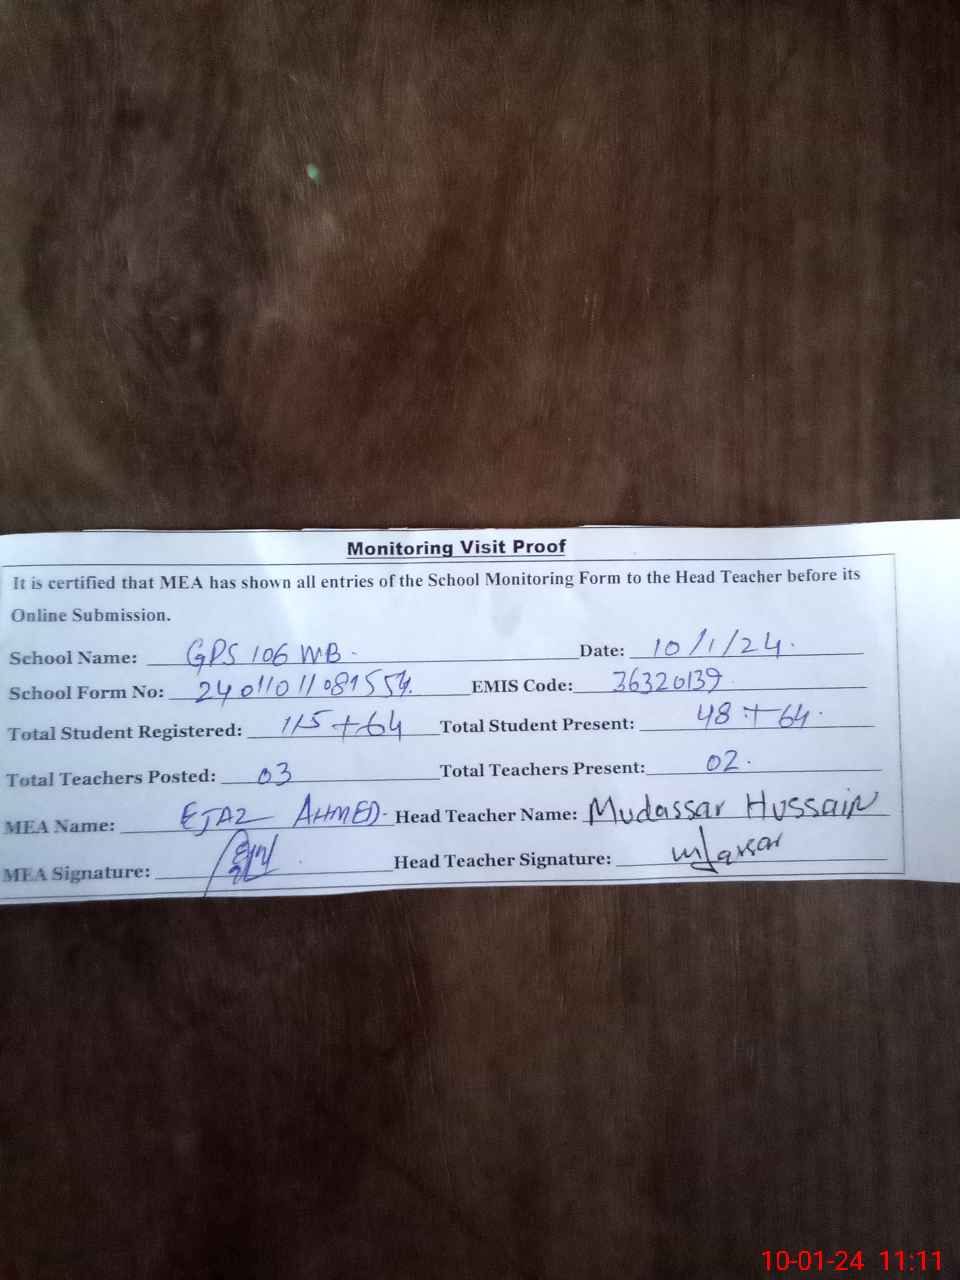 Monitoring Visit Proof
It is certified that MEA has shown all entries of the School Monitoring Form to the Head Teacher before its
Online Submission.
School Name: GPS 106 WB. Date: 10/1/24.
School Form No: 2401101108155 EMIS Code: 36320139
Total Student Registered: 115+64 Total Student Present: 48+64.
Total Teachers Posted: 03 Total Teachers Present: 02.
MEA Name: EJAZ AHMED. Head Teacher Name: Mudassar Hussain
MEA Signature: Head Teacher Signature:
10-01-24 11:11